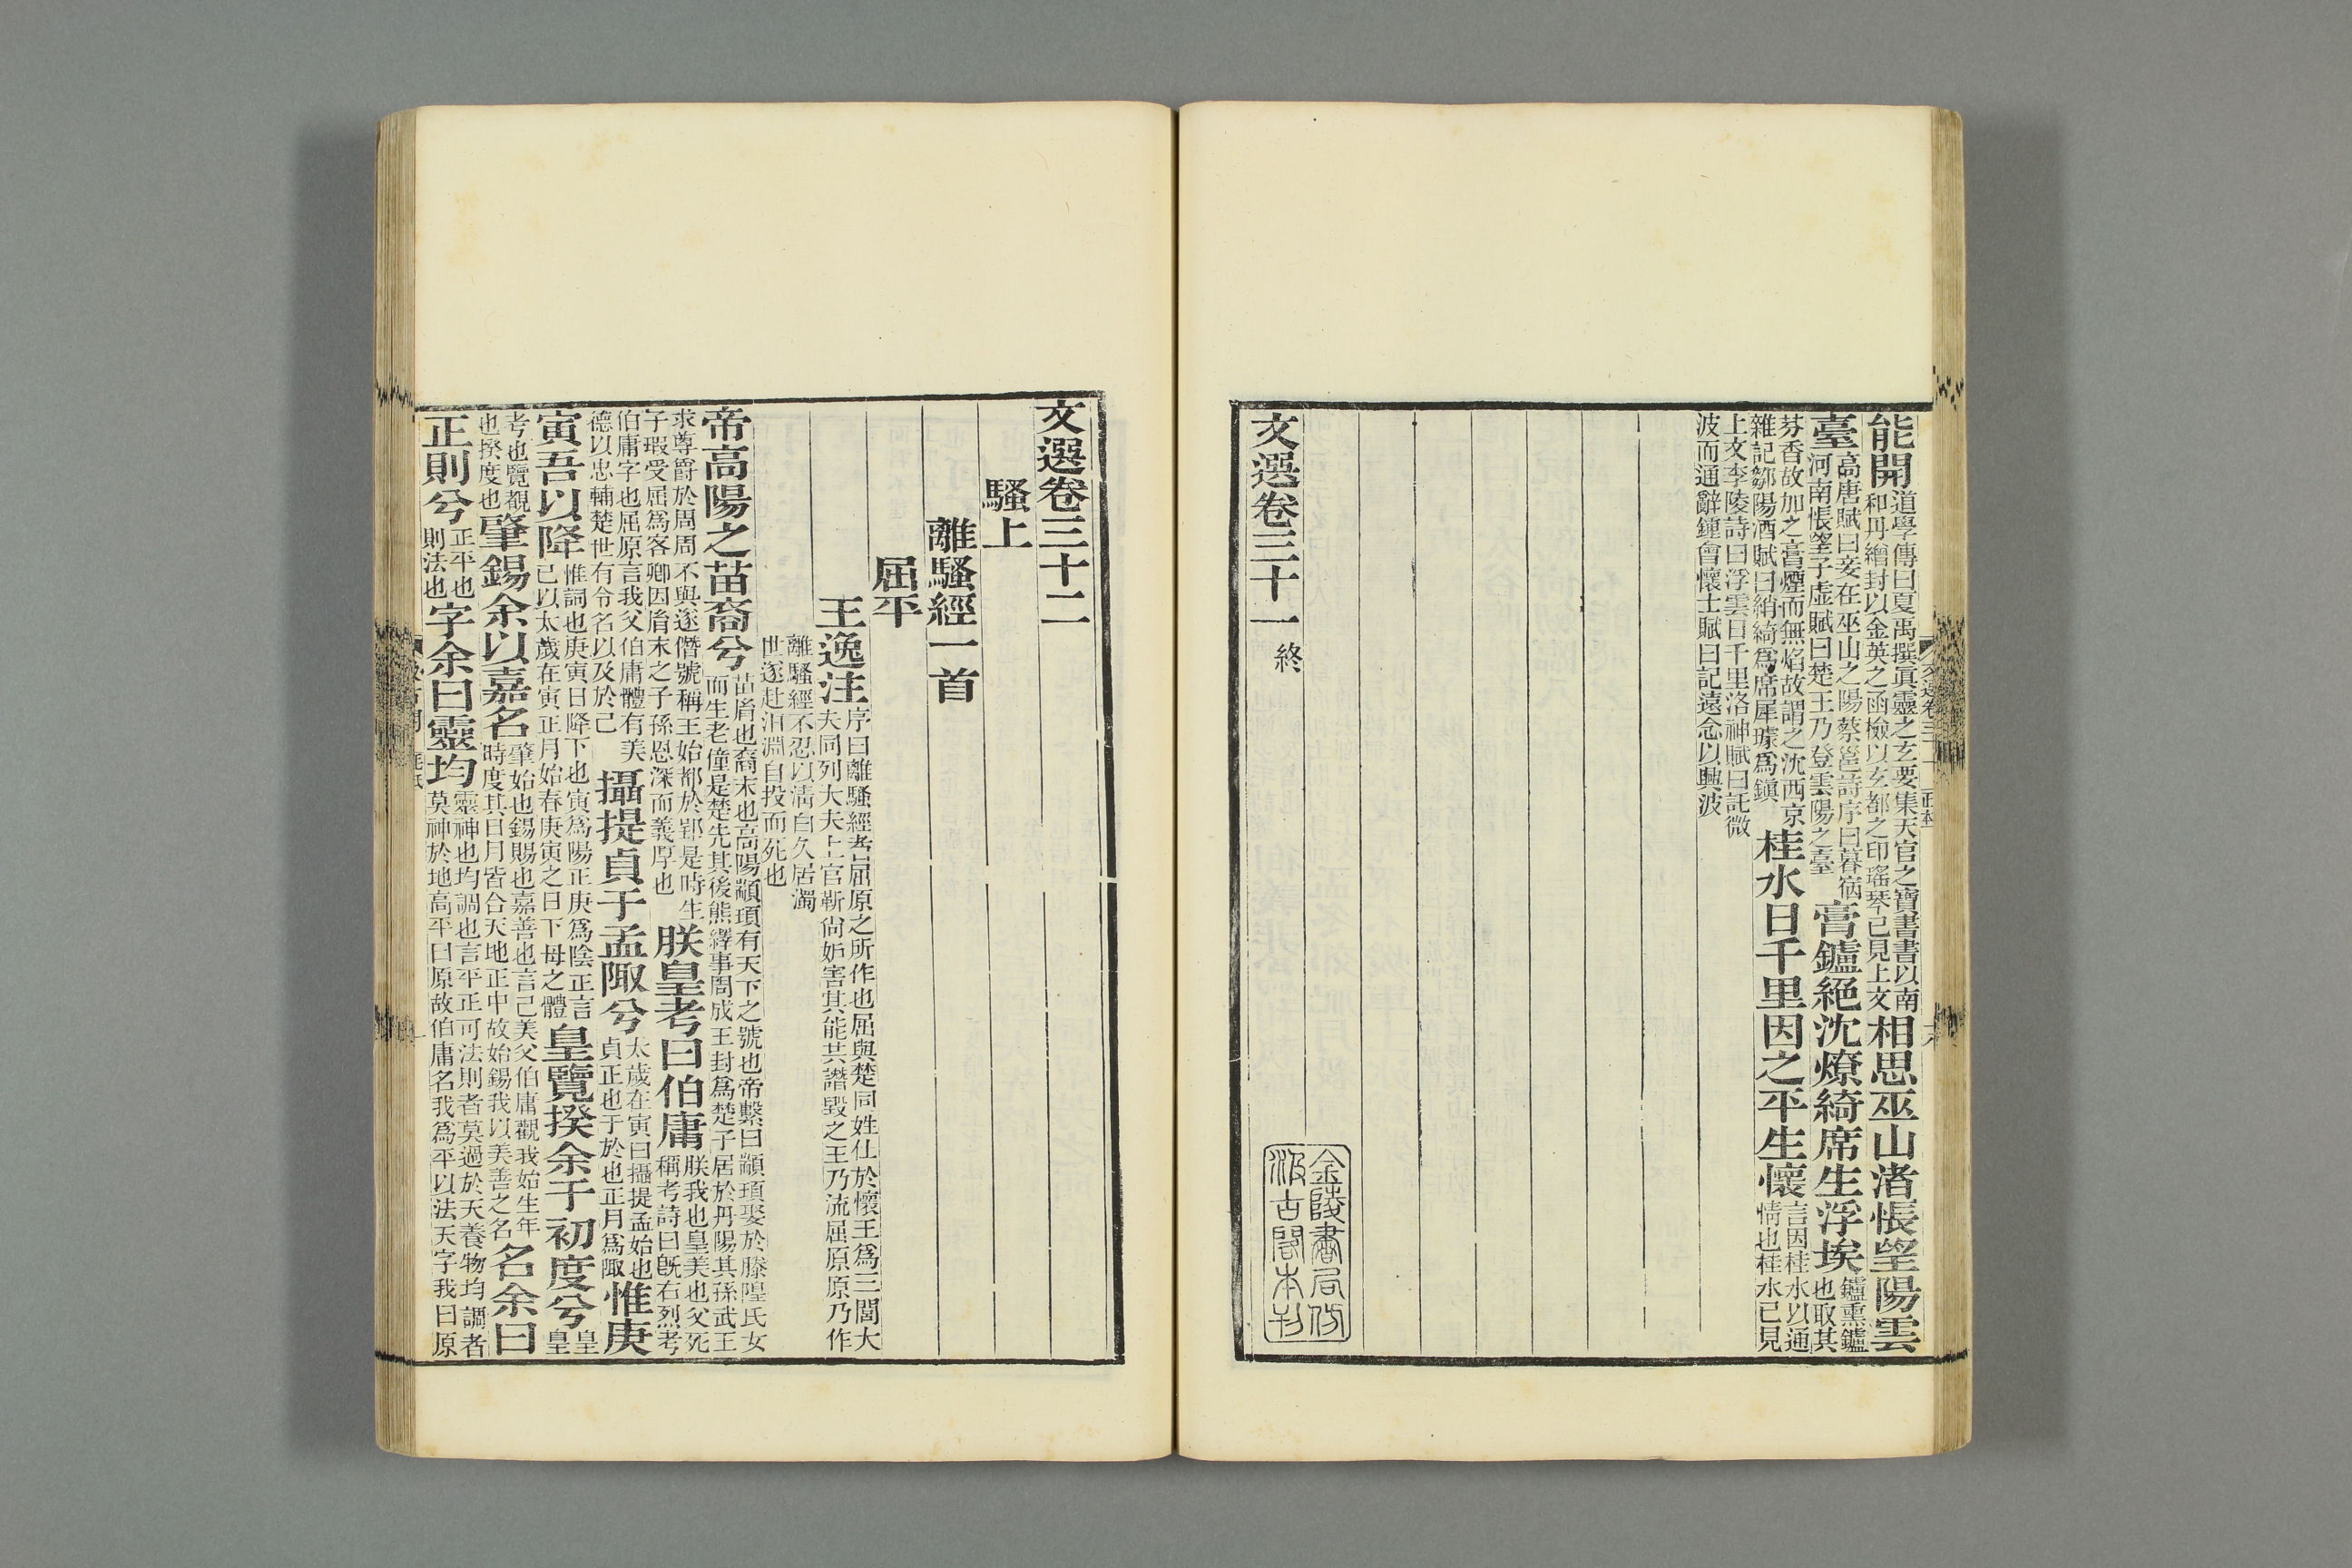 能開道學傳曰夏禹撰眞靈之玄要集天官之寶書書以南和丹繒封以金英之函檢以玄都之印瑤琴已見上文相思巫山渚悵望陽雲
臺高唐賦曰妾在巫山之陽蔡邕詩序曰暮宿河南悵望子虛賦曰楚王乃登雲陽之臺膏鑪絕沈燎綺席生浮埃鑪熏鑪也取其
芬香故加之膏煙而無焰故謂之沈西京雜記鄒陽酒賦曰綃綺爲席犀璩爲鎭桂水日千里因之平生懷言因桂水以通情也桂水已見
上文李陵詩曰浮雲日千里洛神賦曰託微波而通辭鍾會懷士賦曰記遠念以興波
文選卷三十一 終
金陵書局仿
汲古閣本刊
文選卷三十二
騷上
離騷經一首
屈平
王逸注序曰離騷經者屈原之所作也屈與楚同姓仕於懷王爲三閭大夫同列大夫上官靳尙妒害其能共譖毀之王乃流屈原原乃作
離騷經不忍以淸白久居濁世遂赴汨淵自投而死也
帝高陽之苗裔兮苗胄也裔末也高陽顓頊有天下之號也帝繫曰顓頊娶於滕隍氏女而生老僮是楚先其後熊繹事周成王封爲楚子居於丹陽其孫武王
求尊爵於周周不與遂僭號稱王始都於郢是時生子瑕受屈爲客卿因胄末之子孫恩深而義厚也朕皇考曰伯庸朕我也皇美也父死稱考詩曰旣右烈考
伯庸字也屈原言我父伯庸體有美德以忠輔楚世有令名以及於己攝提貞于孟陬兮太歲在寅曰攝提孟始也貞正也于於也正月爲陬惟庚
寅吾以降惟詞也庚寅日降下也寅爲陽正庚爲陰正言己以太歲在寅正月始春庚寅之日下母之體皇覽揆余于初度兮皇皇
考也覽觀也揆度也肇錫余以嘉名肇始也錫賜也嘉善也言己美父伯庸觀我始生年時度其日月皆合天地正中故始錫我以美善之名名余曰
正則兮正平也則法也字余曰靈均靈神也均調也言平正可法則者莫過於天養物均調者莫神於地高平曰原故伯庸名我爲平以法天字我曰原